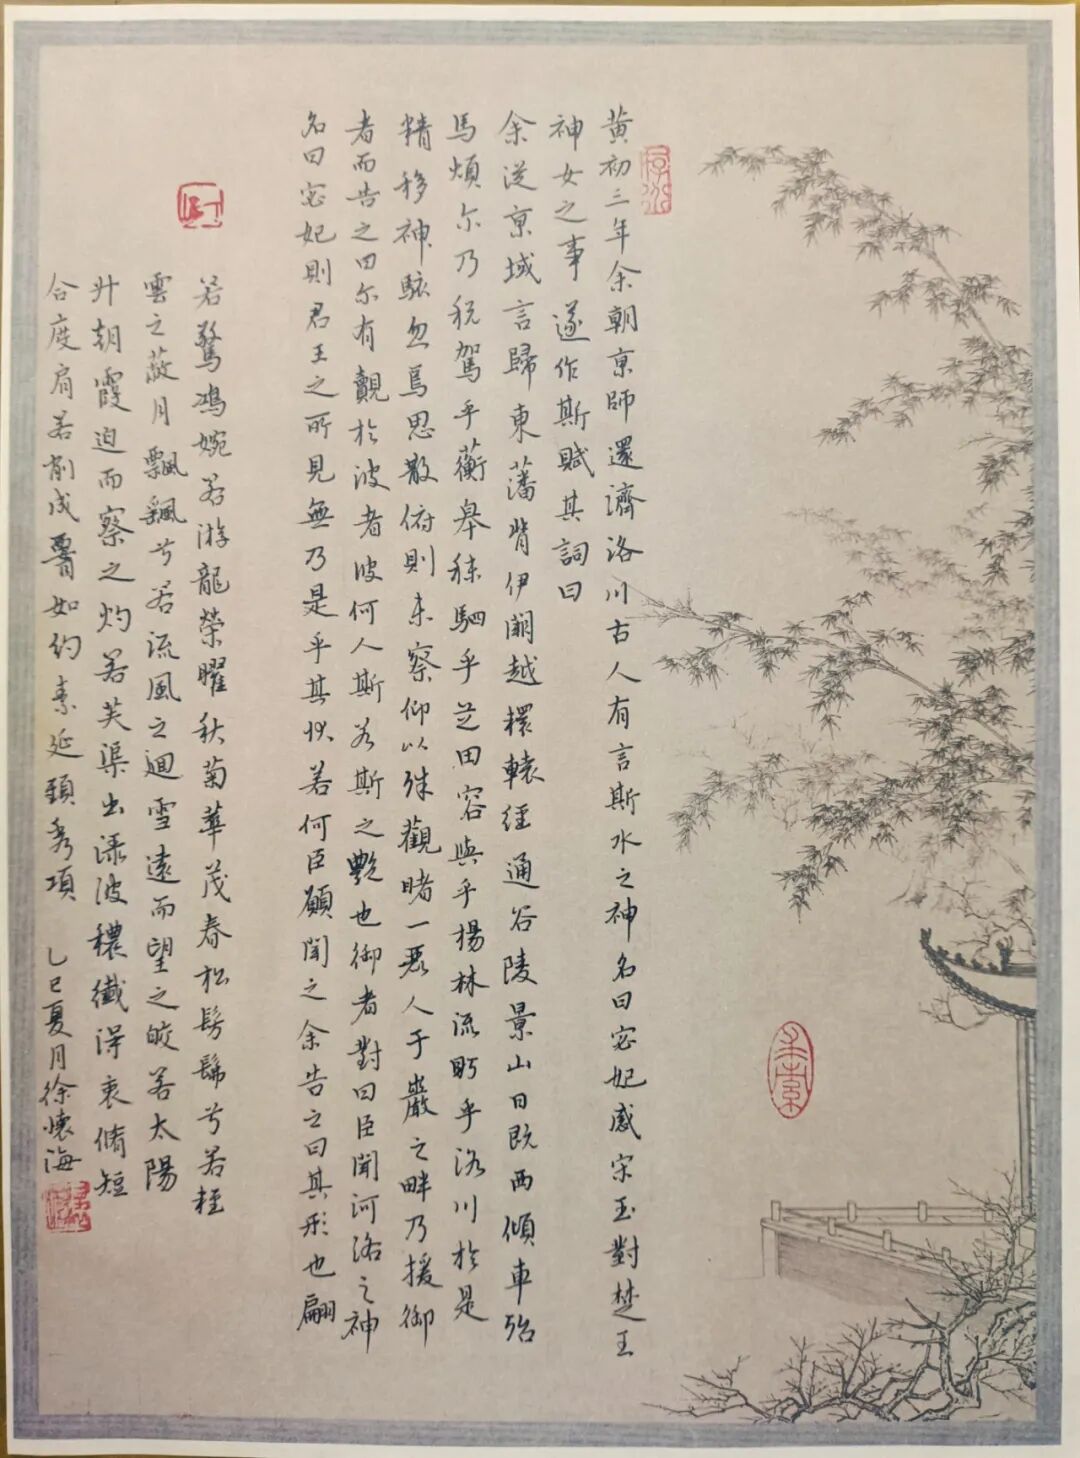 黄初三年余朝京師還濟洛川古人有言斯水之神名曰宓妃感宋玉對楚王
神女之事遂作斯賦其詞曰
余從京域言歸東藩背伊闕越轘轅經通谷陵景山日既西傾車殆
馬煩尔乃税駕乎蘅皋秣駟乎芝田容與乎揚林流眄乎洛川於是
精移神駭忽焉思散俯則未察仰以殊觀睹一麗人于巖之畔乃援御
者而告之曰尔有覿於彼者彼何人斯若斯之艷也御者對曰臣聞河洛之神
名曰宓妃則君王之所見無乃是乎其状若何臣願聞之余告之曰其形也翩
若驚鴻婉若游龍榮曜秋菊華茂春松髣髴兮若輕
雲之蔽月飄颻兮若流風之迴雪遠而望之皎若太陽
升朝霞迫而察之灼若芙渠出淥波穠纖得衷脩短
合度肩若削成腰如約素延頸秀項 乙巳夏月徐懷海